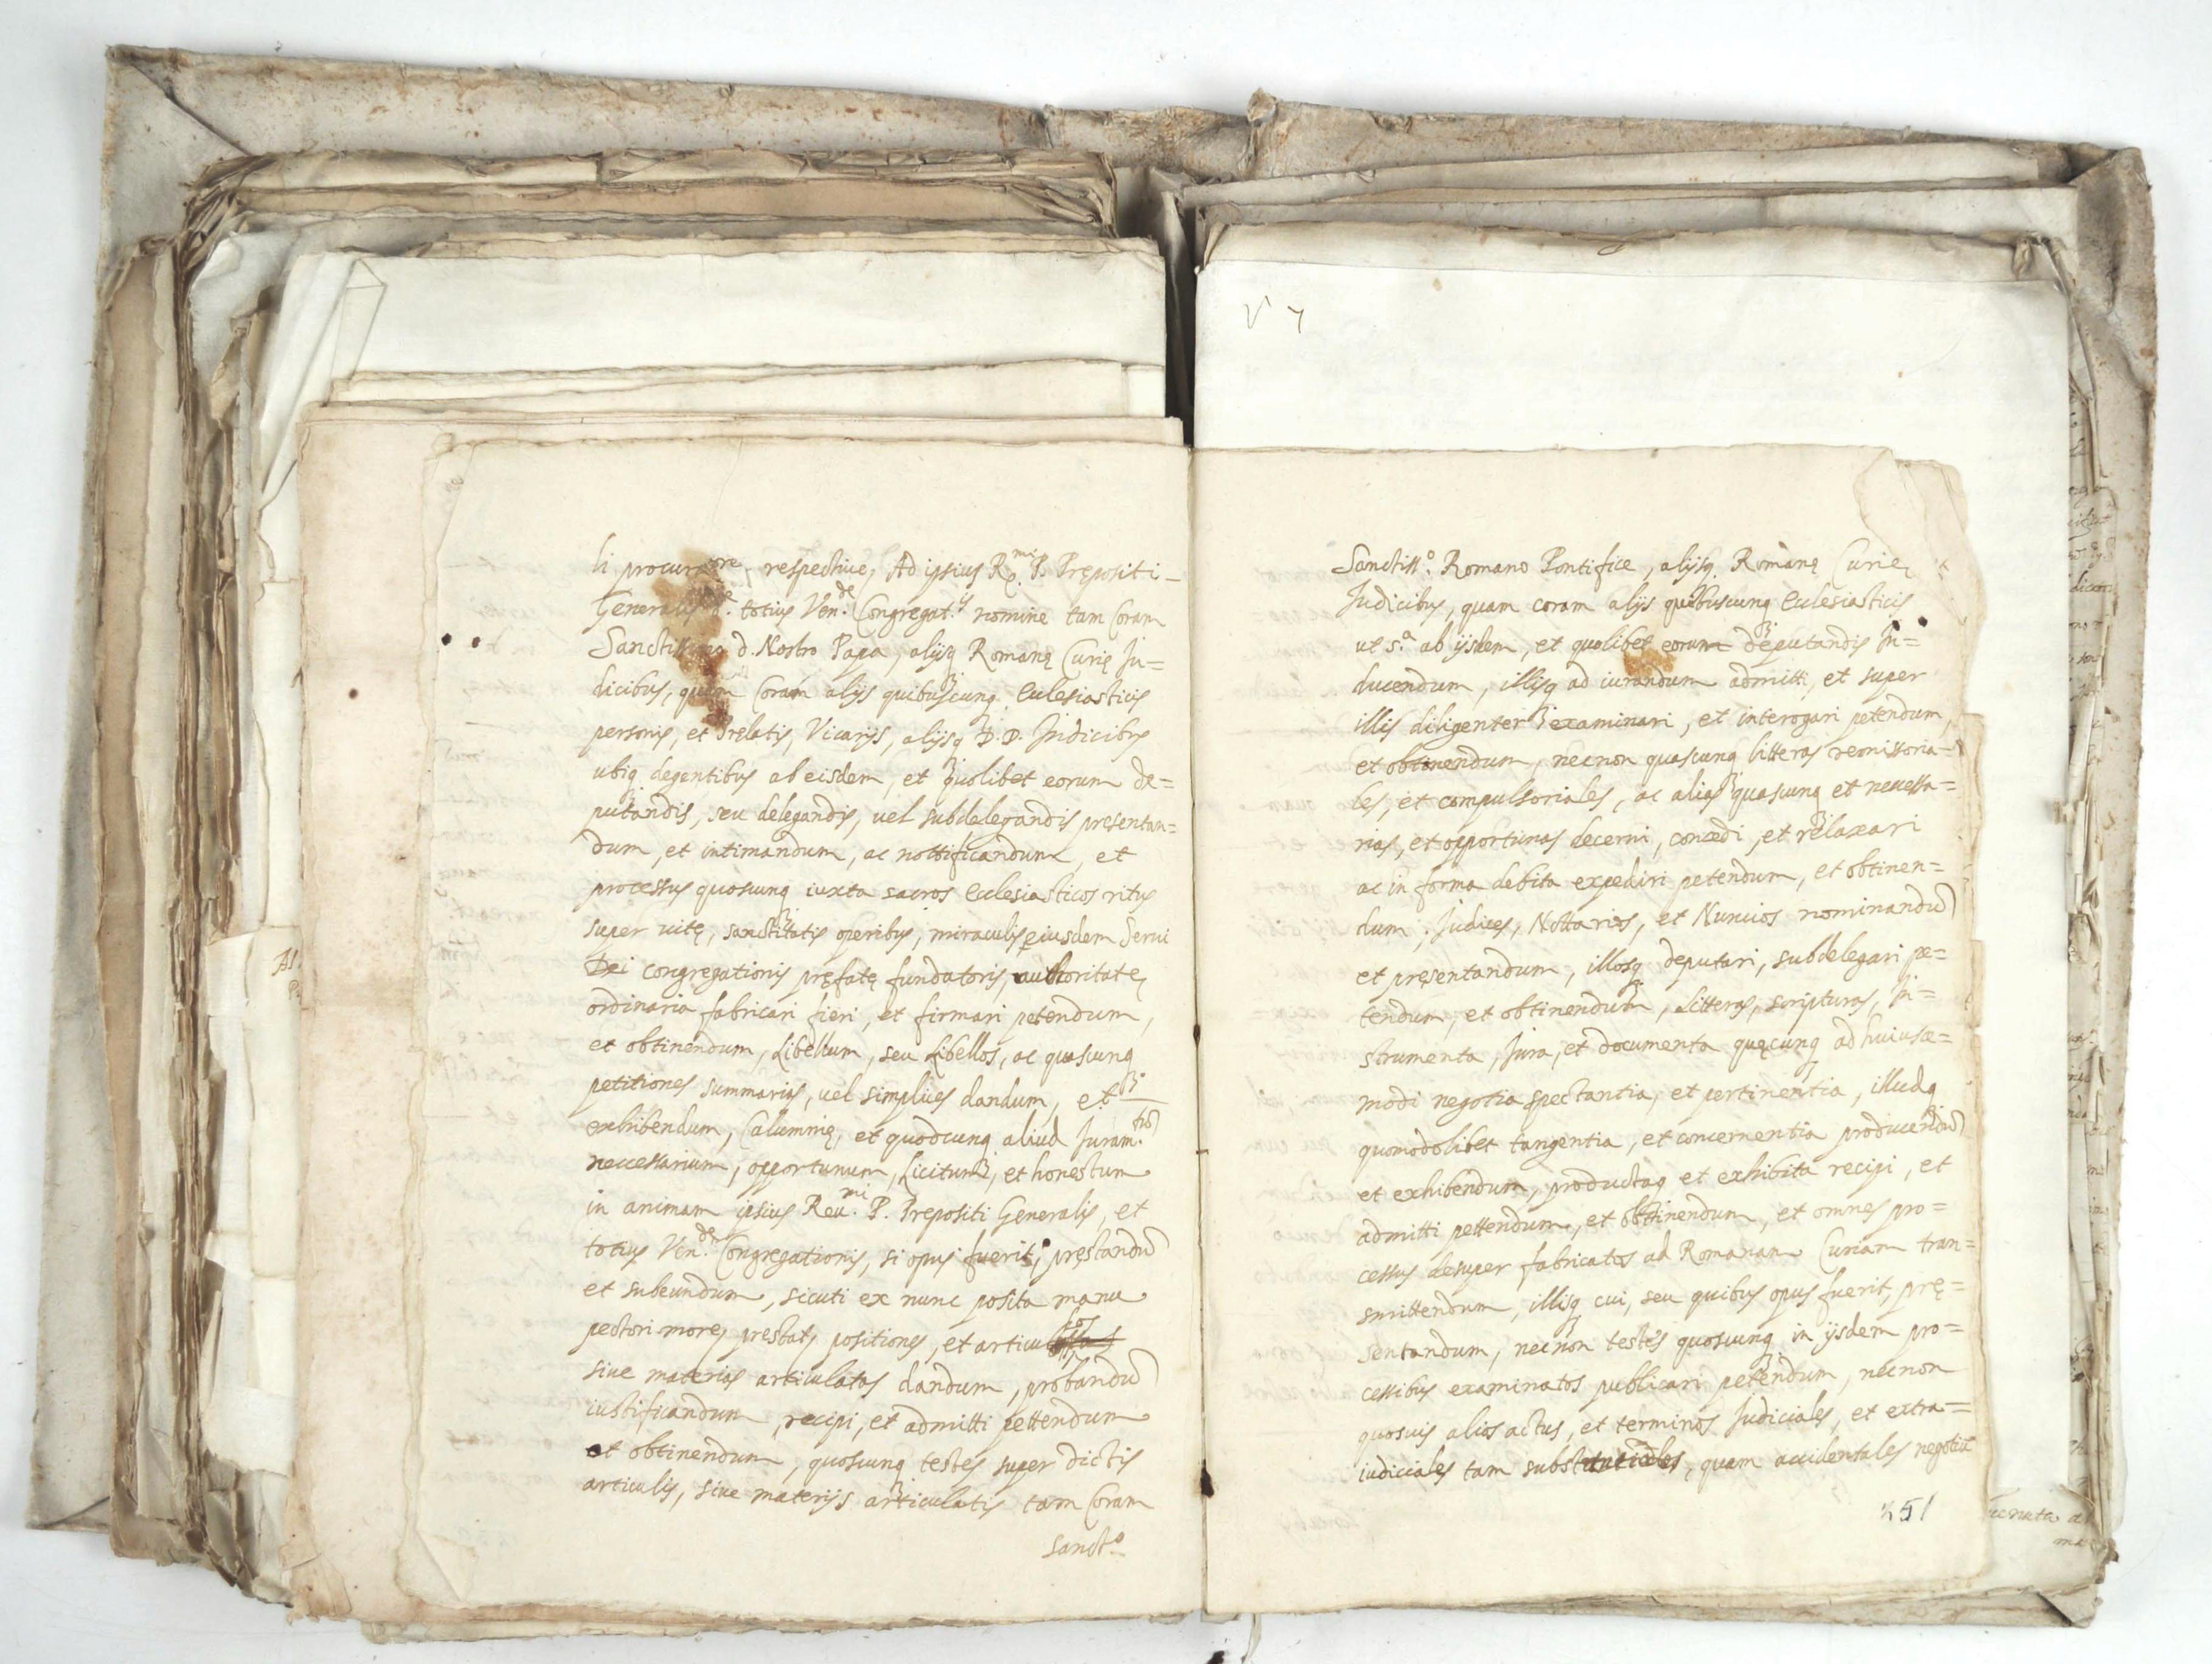 li procuratore, respectiue, Ad ipsius R.mi P. Prępositi-
Generalis totius Ven.de Congregat.is nomine tam Coram
Sanctissimo d. Nostro Papa, alijsq Romanę Curię Ju=
dicibus, quam Coram alijs quibuscunq Eclesiasticis
personis, et Prelatis, Vicarijs, alijsq D.D. Judicibus
ubiq degentibus ab eisdem, et quolibet eorum de=
putandis, seu delegandis, uel subdelegandis presentan=
dum, et intimandum, ac nottificandum, et
processus quoscunq iuxta sacros Eclesiasticos ritus
super uitę, sanctitatis operibus, miraculis eiusdem Serui
Dei congregationis pręfatę fundatoris, authoritate
ordinaria fabricari fieri, et firmari petendum,
et obtinendum, Libellum, seu Libellos, ac quascunq
petitiones summarias, uel simplices dandum, et
exhibendum, Calumnię, et quodcunq aliud Juram.tum
necessarium, opportunum, Licitum, et honestum
in animam ipsius Reu.mi P. Prepositi Generalis, et
totius Ven.de Congregationis, si opus fuerit, pręstandū
et subeundum, sicuti ex nunc posita manu
pectori more, prestat, positiones, et articulos
siue materias articulatas dandum, probandū
iustificandum, recipi, et admitti pettendum
et obtinendum, quoscunq testes super dictis
articulis, siue materijs articulatis tam Coram
Sanct.o
V 7
Sanctiss.o Romano Pontifice, alijsq Romanę Curię
Judicibus, quam coram alijs quibuscunq Eclesiasticis
ut s.a ab ijsdem, et quolibet eorum deputandis In=
ducendum, illisq ad iurandum admitti, et super
illis diligenter examinari, et interogari petendum,
et obtinendum, necnon quascunq litteras remissoria=
les, et compulsoriales, ac alias quascunq et necessa=
rias, et opportunas decerni, concedi, et relaxari
ac in forma debita expediri petendum, et obtinen=
dum, Judices, Nottarios, et Nuncios nominandū
et presentandum, illosq deputari, subdelegari pe=
tendum, et obtinendum, Litteras, scripturas, In=
strumenta, Jura, et documenta quęcunq ad huiusce=
modi negotia spectantia, et pertinentia, illudq
quomodolibet tangentia, et concernentia producendū
et exhibendum, productaq et exhibita recipi, et
admitti pettendum, et obttinendum, et omnes pro=
cessus desuper fabricatos ad Romanam Curiam tran=
smittendum, illisq cui, seu quibus opus fuerit, prę=
sentandum, necnon testes quoscunq in ijsdem pro=
cessibus examinatos publicari petendum, necnon
quosuis alios actus, et terminos Judiciales, et extra=
iudiciales tam substantiales, quam accidentales negotiū
251